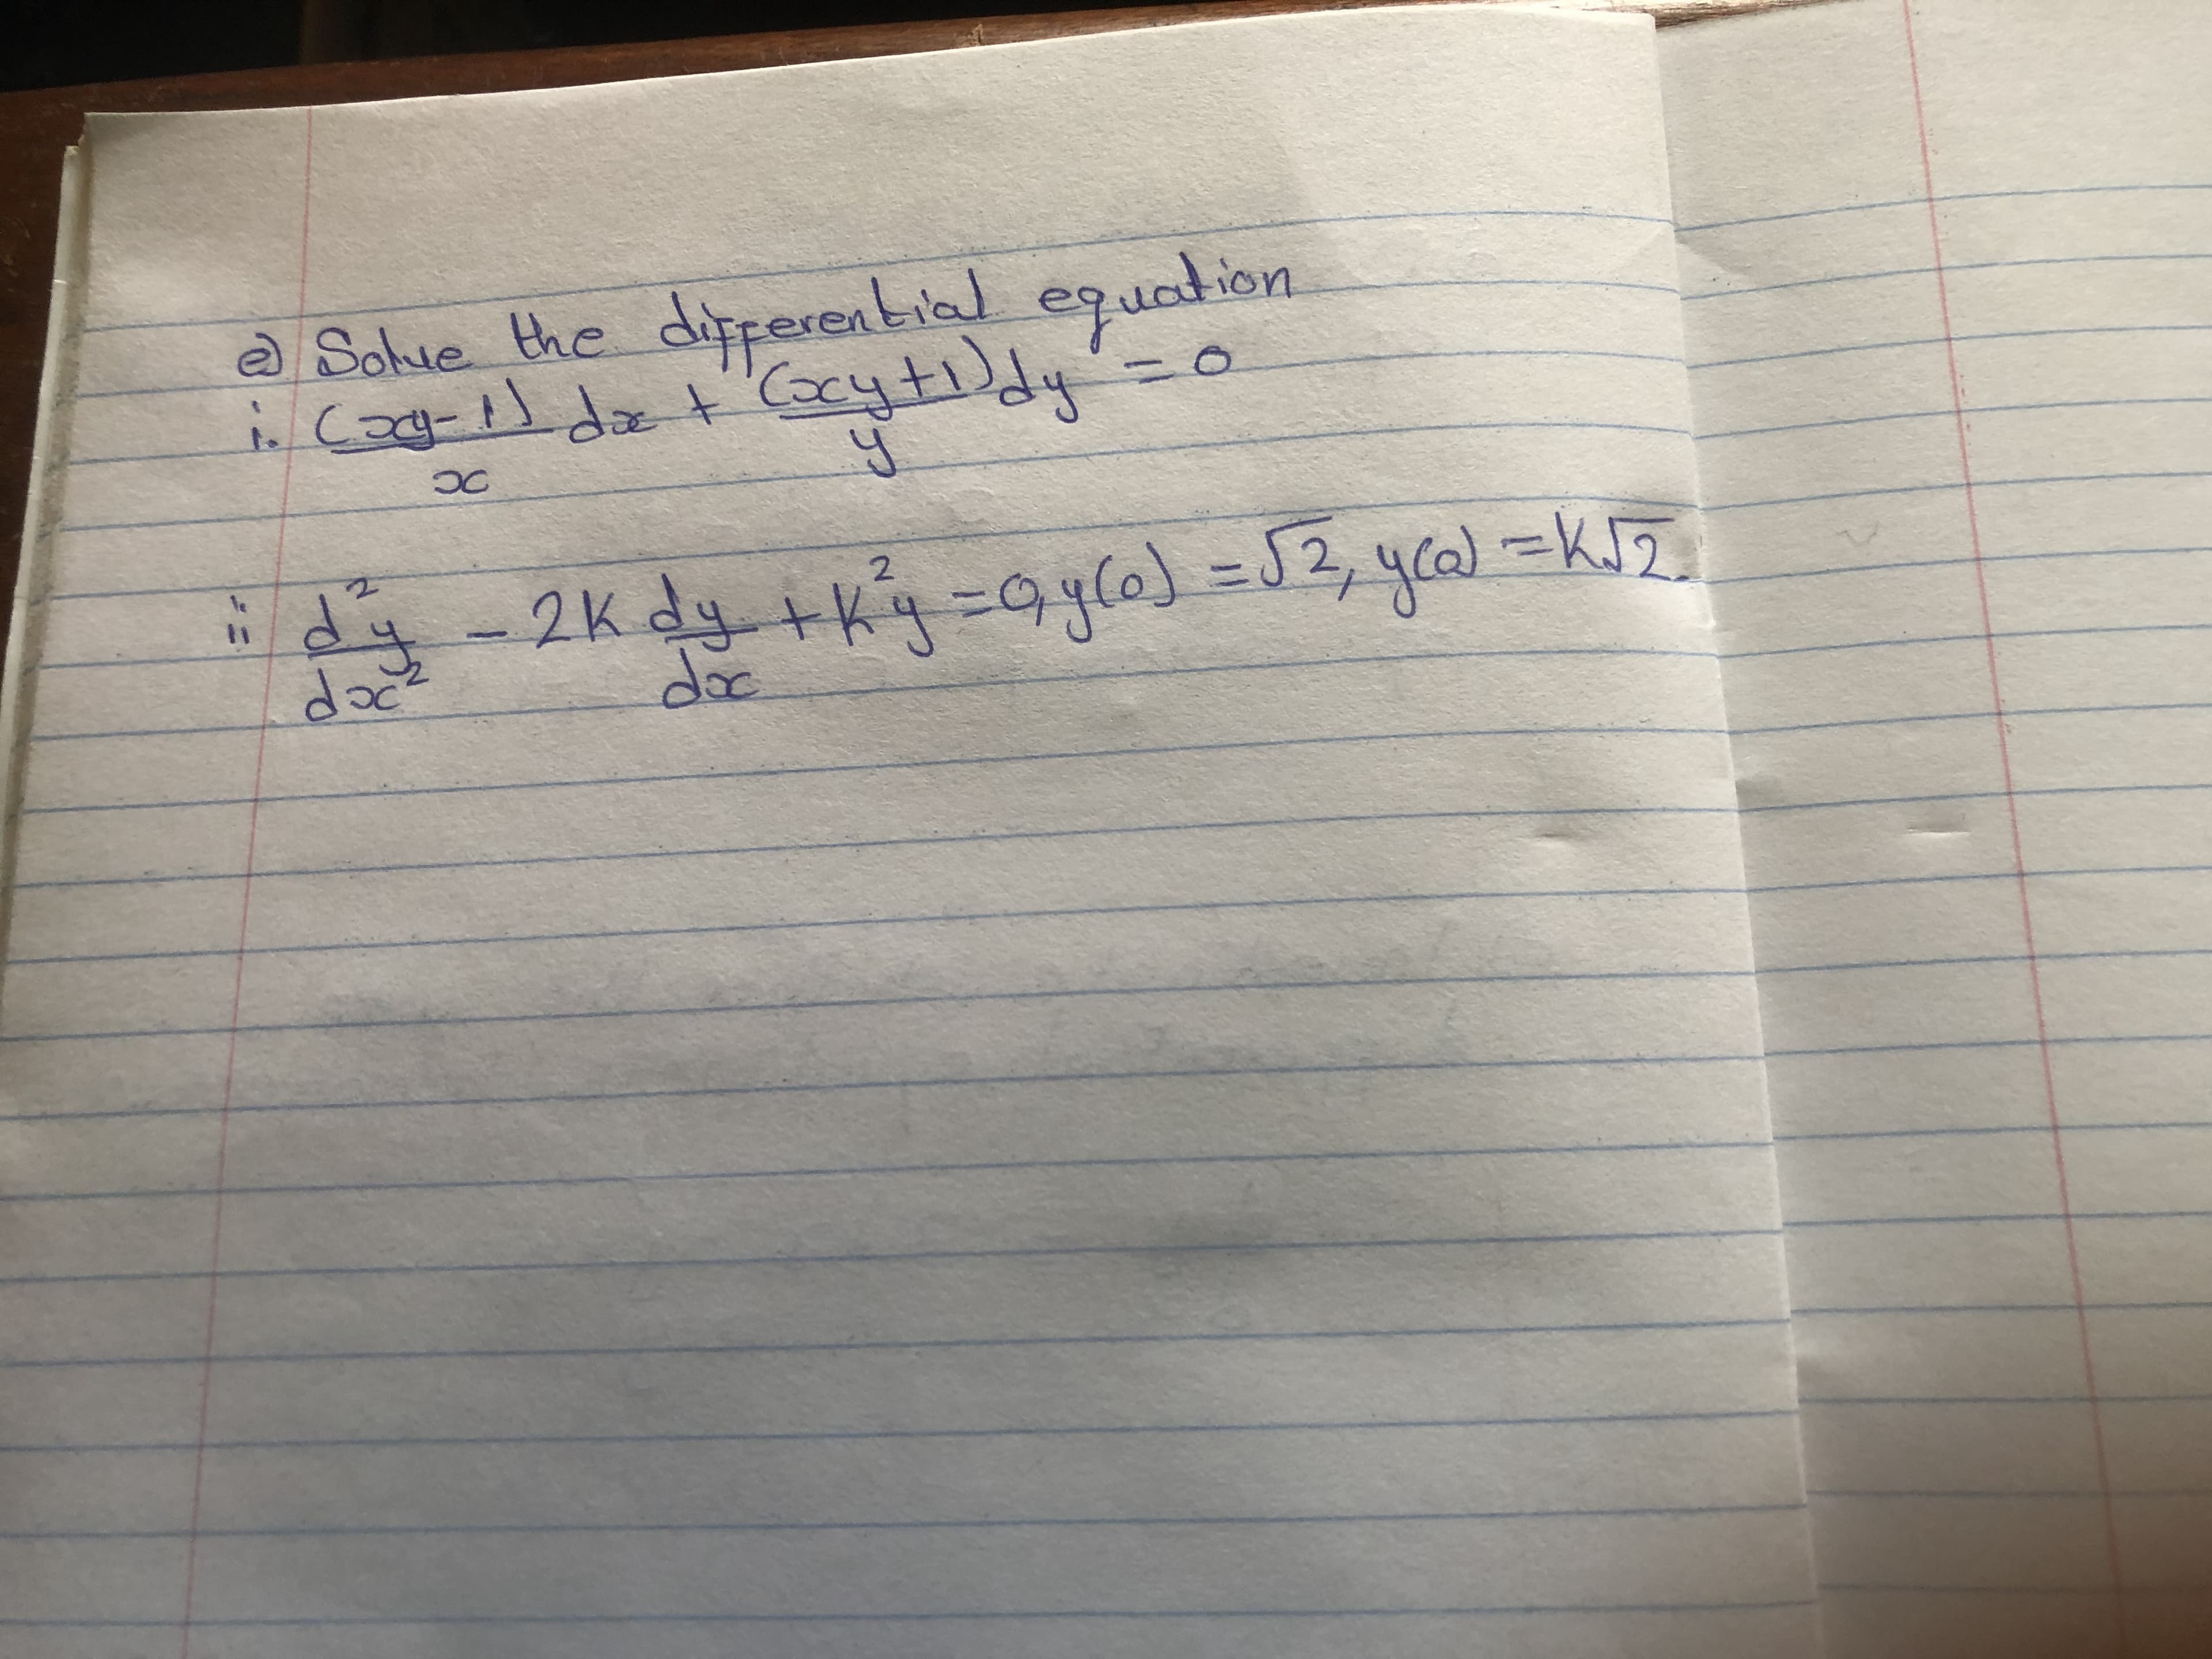 e) Solve the differential equation
i. (xy-1)/x dx + (xy+1)/y dy = 0
ii d²y/dx² - 2K dy/dx + K²y = 0, y(0) = √2, y(0) = K√2.